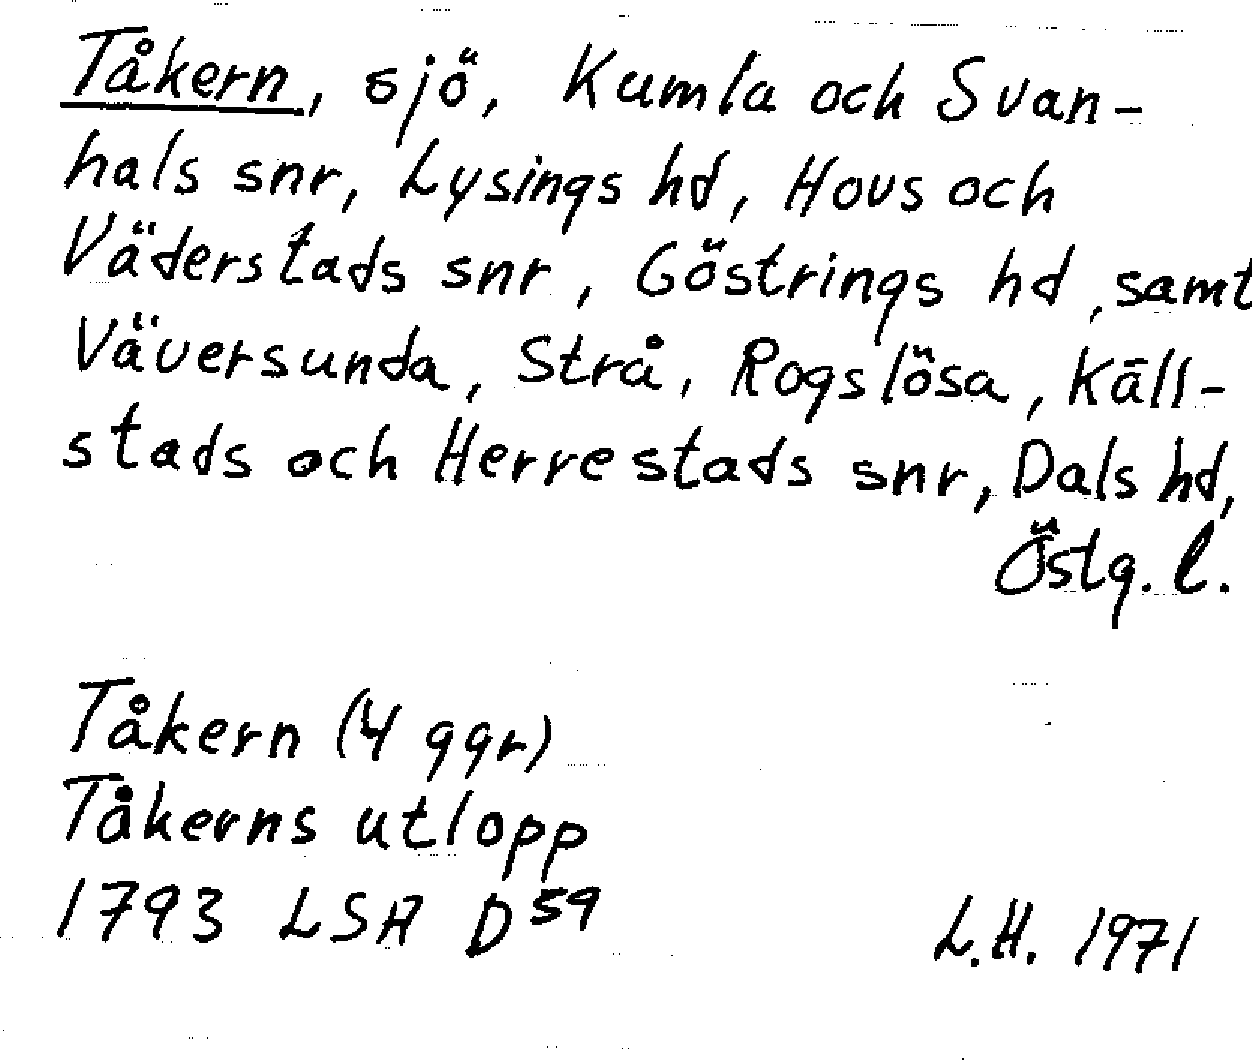 Tåkern, sjö, Kumla och Svan-
hals snr, Lysings hd, Hovs och
Väderstads snr, Göstrings hd, samt
Väversunda, Strå, Rogslösa, Käll-
stads och Herrestads snr, Dals hd,
Östg. l.
Tåkern (4 ggr)
Tåkerns utlopp
1793 LSA D 59
L.H. 1971